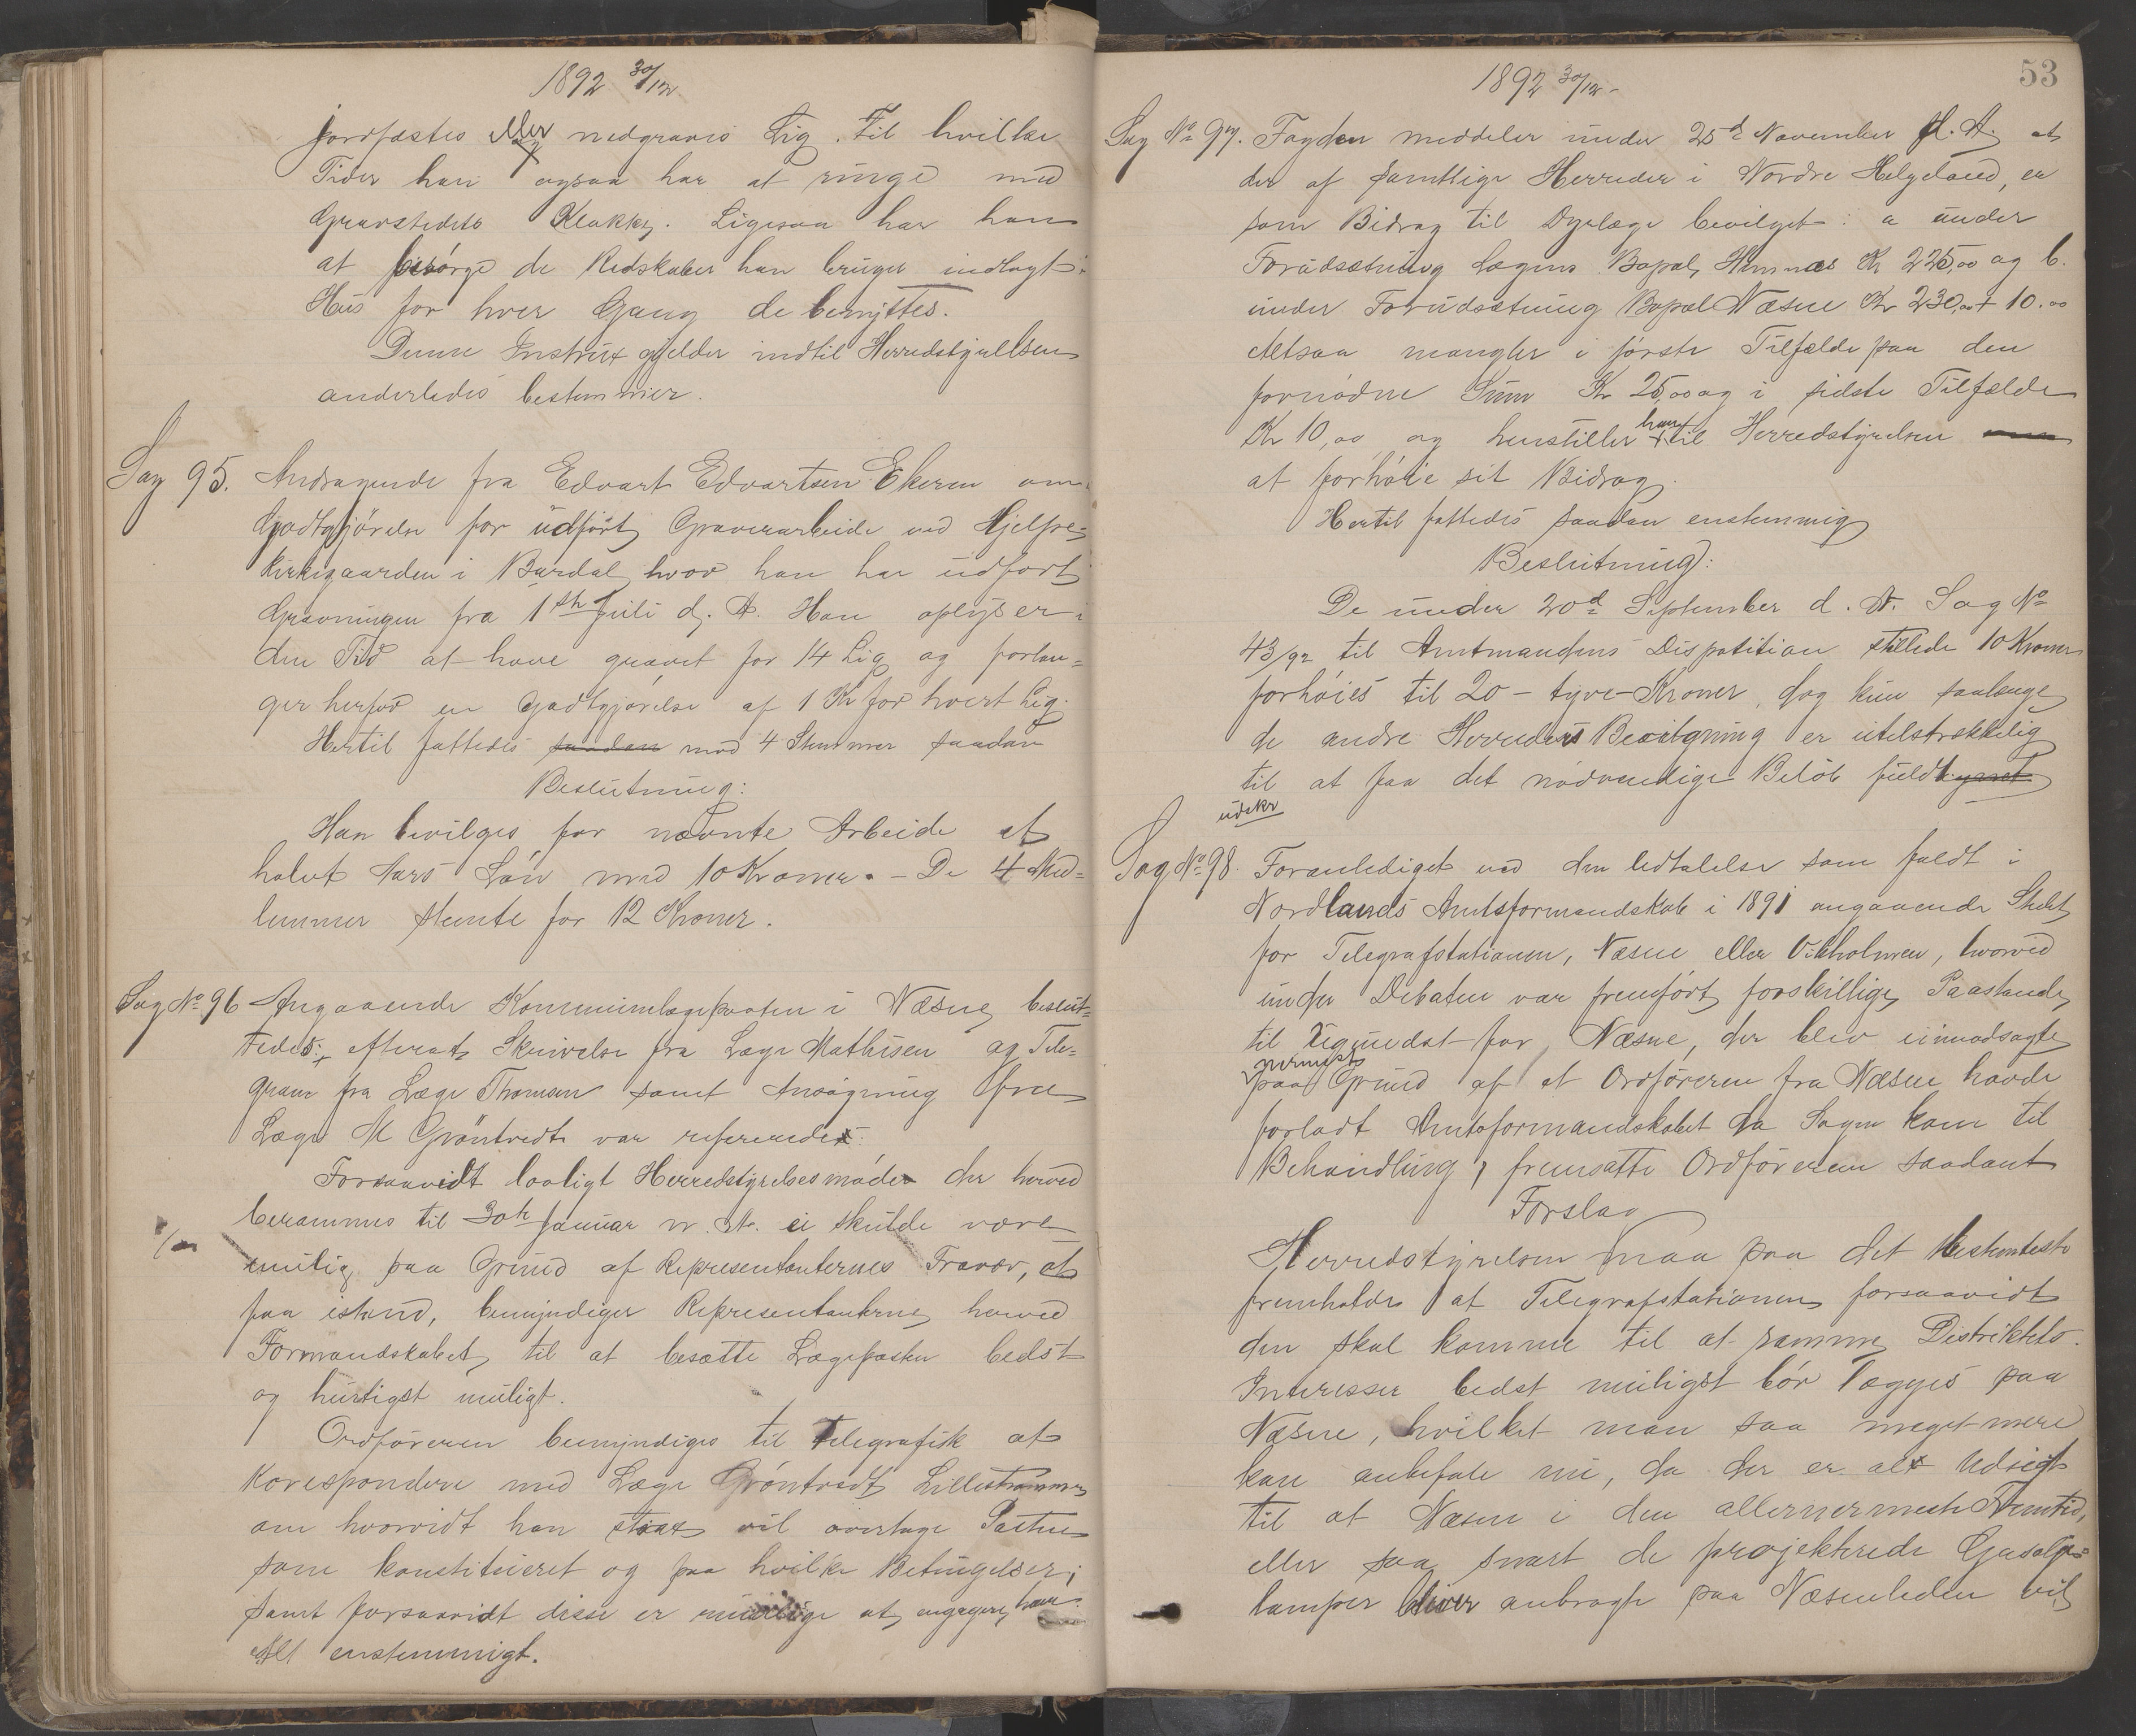 1892 30/12
jordfæstes eller nedgraves Lig. Til hvilke
Tider han ogsaa har at ringe med
Gravstedets Klokke. Ligesaa har han
at besörge de Redskaber han bruger indlagt i
Hus for hver Gang de benyttes.
Denne Instrux gjelder indtil Herredstyrellsen
anderledes bestemmer.
Sag 95. Andragende fra Edvart Edvartsen Ekeren om
Godtgjörelse for udfört Graverarbeide ved Hjelpe-
kirkegaarden i Bardal, hvor han har udfört
Gravningen fra 1ste Juli d. A. Han oplyser i
den Tid at have gravet for 14 Lig og forlan=
ger herfor en Godtgjörelse af 1 Kr for hvert Lig.
Hertil fattedes saadan mod 4 Stemmer saadan
Beslutning:
Han bevilges for nævnte Arbeide et
halvt Aars Lön med 10 Kroner. - De 4 Med=
lemmer stemte for 12 Kroner.
Sag No 96 Angaaende Kommunelægeposten i Næsne beslut-
tedes: efterat Skrivelse fra Læge Mathisen og Tele=
gram fra Læge Thomsen samt Ansögning fra
Læge M Gröntvedt var refererede:
Forsaavidt lovligt Herredstyrelsesmöde der herved
berammes til 30te Januar n. A. ei skulde være
mulig paa Grund af Representanternes Fravær, at
faa istand, bemyndiger Representanterne herved
Formandskabet til at besætte Lægeposten bedst
og hurtigst muligt.
Ordföreren bemyndiges til telegrafisk at
korespondere med Læge Gröntvedt Lillestrømmen
om hvorvidt han strax vil overtage Posten
som konstitueret og paa hvilke Betingelser;
samt forsaavidt disse er mulige at engagere ham.
Alt enstemmigt.
53
1892 30/12 -
Sag No 97. Fogden meddeler under 25de November d. A. at
der af samtlige Herreder i Nordre Helgeland, er
som Bidrag til Dyrlæge bevilget: a under
Forudsætning Lægens Bopæl, Hemnæs Kr 225,00 og b.
under Forudsætning Bopæl Næsne Kr 230,00 + 10.00
Altsaa mangler i förste Tilfælde paa den
fornödne Sum Kr 25,00 og i sidste Tilfælde
Kr 10,00 og henstiller han til Herredstyrelsen
at forhöie sit Bidrag.
Hertil fattedes saadan enstemmig
Beslutning:
De under 20de September d. A. Sag No
43/92 til Amtmandens Disposition stillede 10 Kroner
forhöies til 20 - tyve - Kroner, dog kun saalænge
de andre Herreders Bevilgning er utilstrekkelig
til at faa det nödvendige Belöb fuldtegnet
udskr
Sag No 98. Foranlediget ved den Udtalelse som faldt i
Nordlands Amtsformandskab i 1891 angaaende Stedet
for Telegrafstationen, Næsne eller Vikholmen, hvorved
under Debaten var fremfört forskillige Paastande
til Ugunst for Næsne, der blev uimodsagte
nærmest
paa Grund af at Ordföreren fra Næsne havde
forladt Amtsformandskabet da Sagen kom til
Behandling, fremsatte Ordföreren saadant
Forslag
Herredstyrelsen maa paa det bestemteste
fremholde at Telegrafstationen forsaavidt
den skal komme til at ramme Distriktets
Interesser bedst muligst bör lægges paa
Næsne, hvilket man saa meget mere
kan anbefale nu, da der er al Udsigt
til at Næsne i den allernermeste Fremtid,
eller saa snart de projekterede Gasolje-
lamper bliver anbragt paa Næsneleden vil